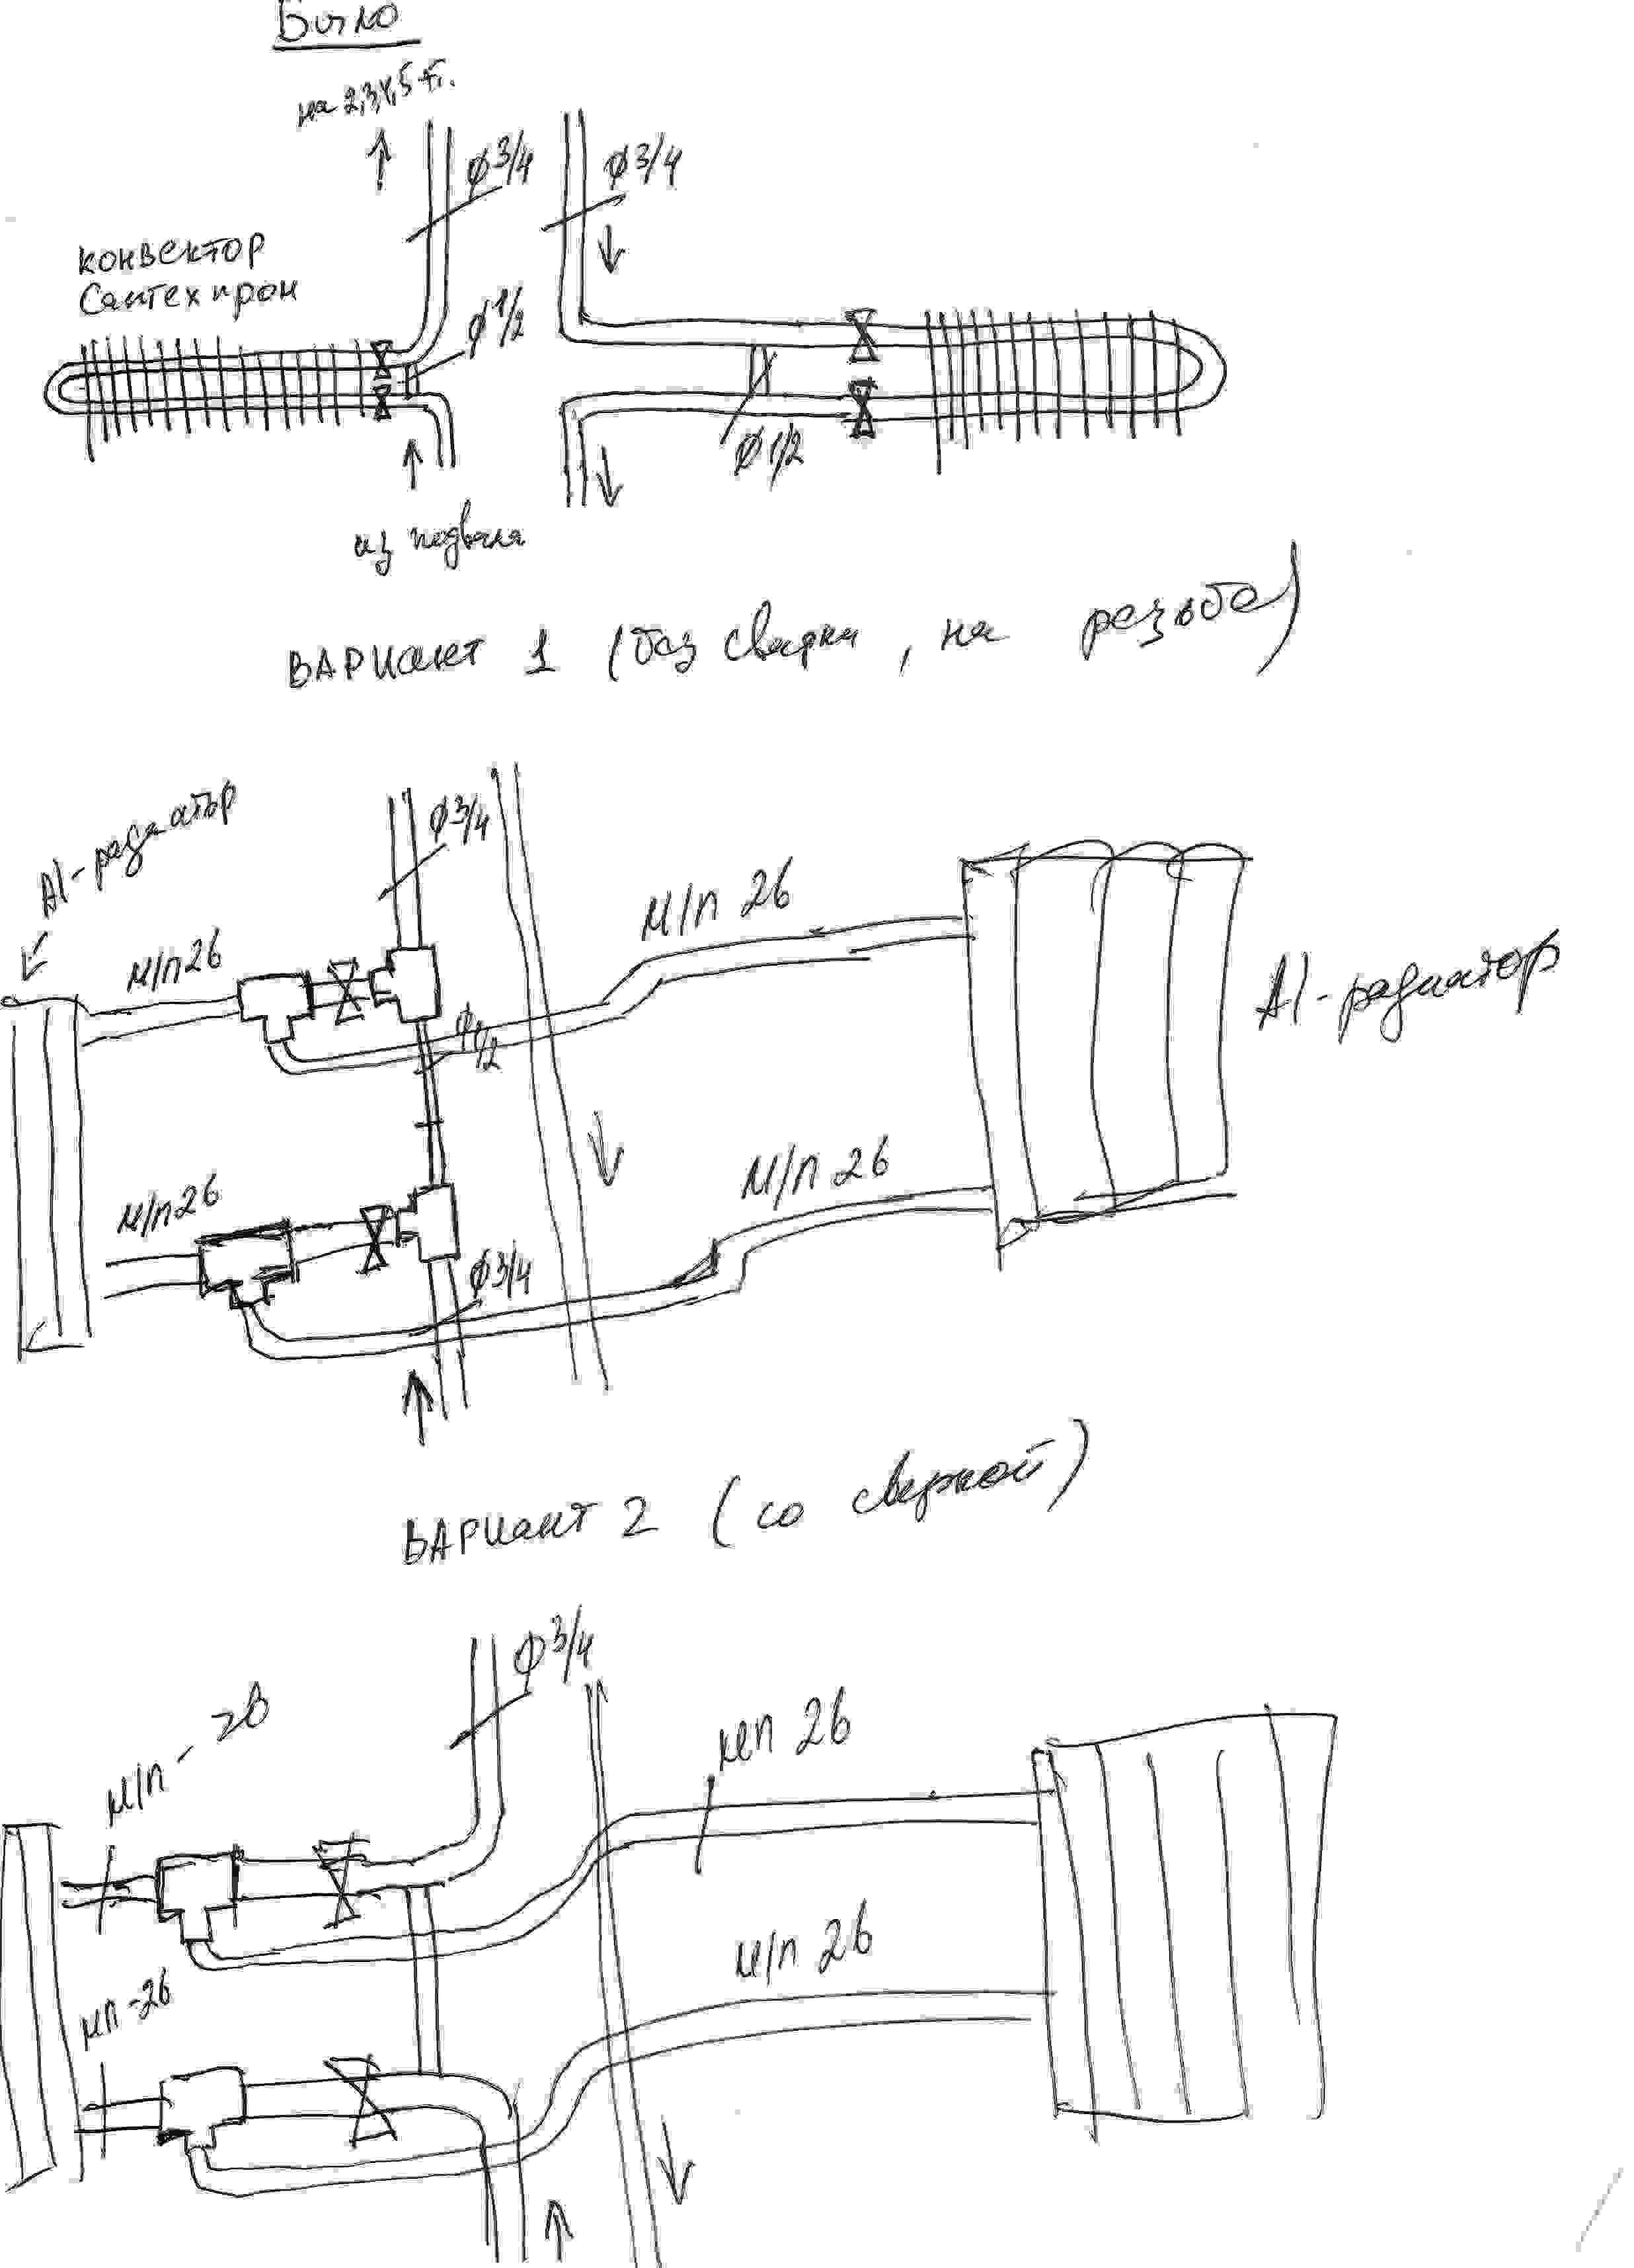 Было
на 2,3,4,5 эт.
ф3/4
ф3/4
конвектор
Сантехпром
ф1/2
ф1/2
из подвала
ВАРИант 1 (без сварки, на резьбе)
Al-радиатор
ф3/4
м/п 26
м/п 26
ф1/2
Al-радиатор
м/п 26
м/п 26
ф3/4
ВАРИант 2 (со сваркой)
ф3/4
м/п-26
мп 26
м/п 26
мп-26